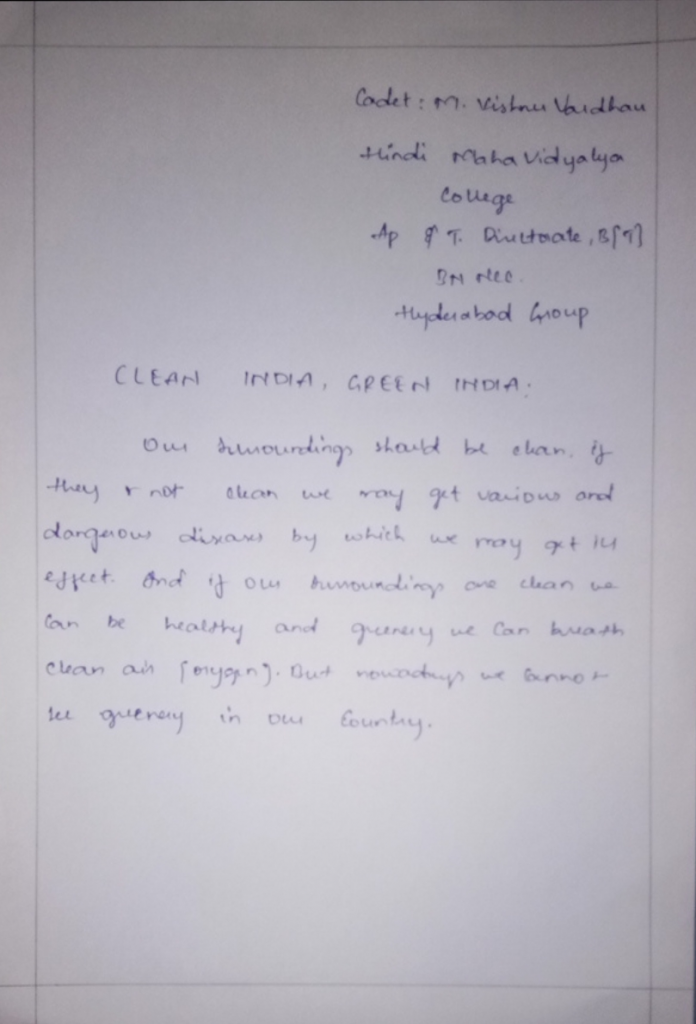 Cadet : M. Vishnu Vardhan
Hindi Maha Vidyalya
College
Ap & T. Directorate, B[T]
BN NCC.
Hyderabad Group
CLEAN INDIA, GREEN INDIA:
Our surroundings should be clean. if
they r not clean we may get various and
dangerous diseases by which we may get ill
effect. And if our surroundings are clean we
can be healthy and greenery we can breath
clean air [oxygen]. But nowadays we cannot
see greenery in our country.